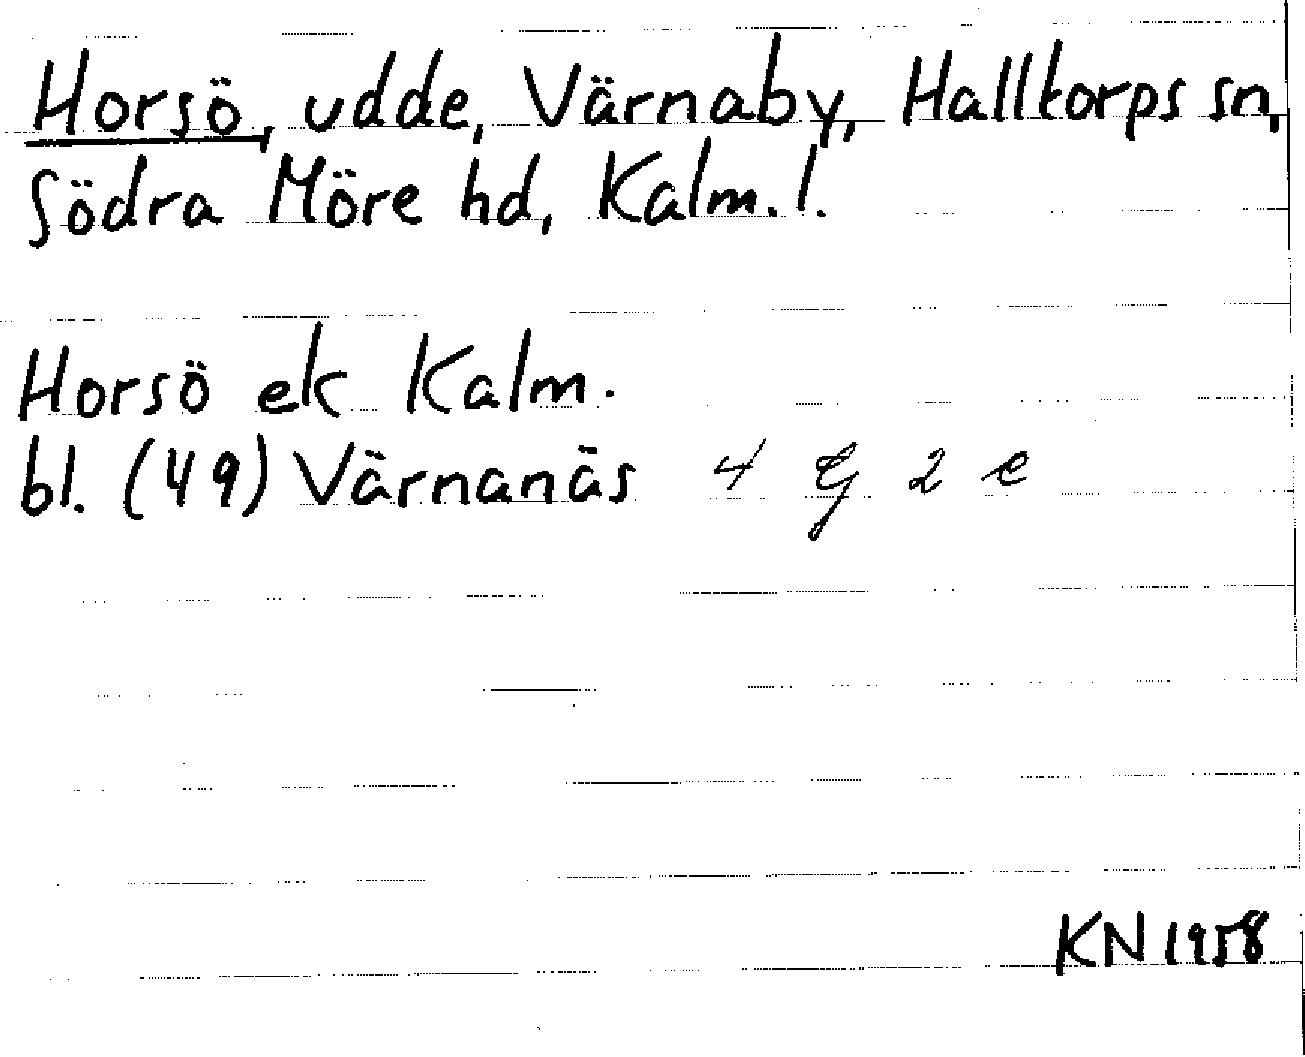 Horsö, udde, Värnaby, Halltorps sn,
Södra Möre hd, Kalm. l.
Horsö ek Kalm.
bl. (49) Värnanäs 4 G 2 e
KN 1958